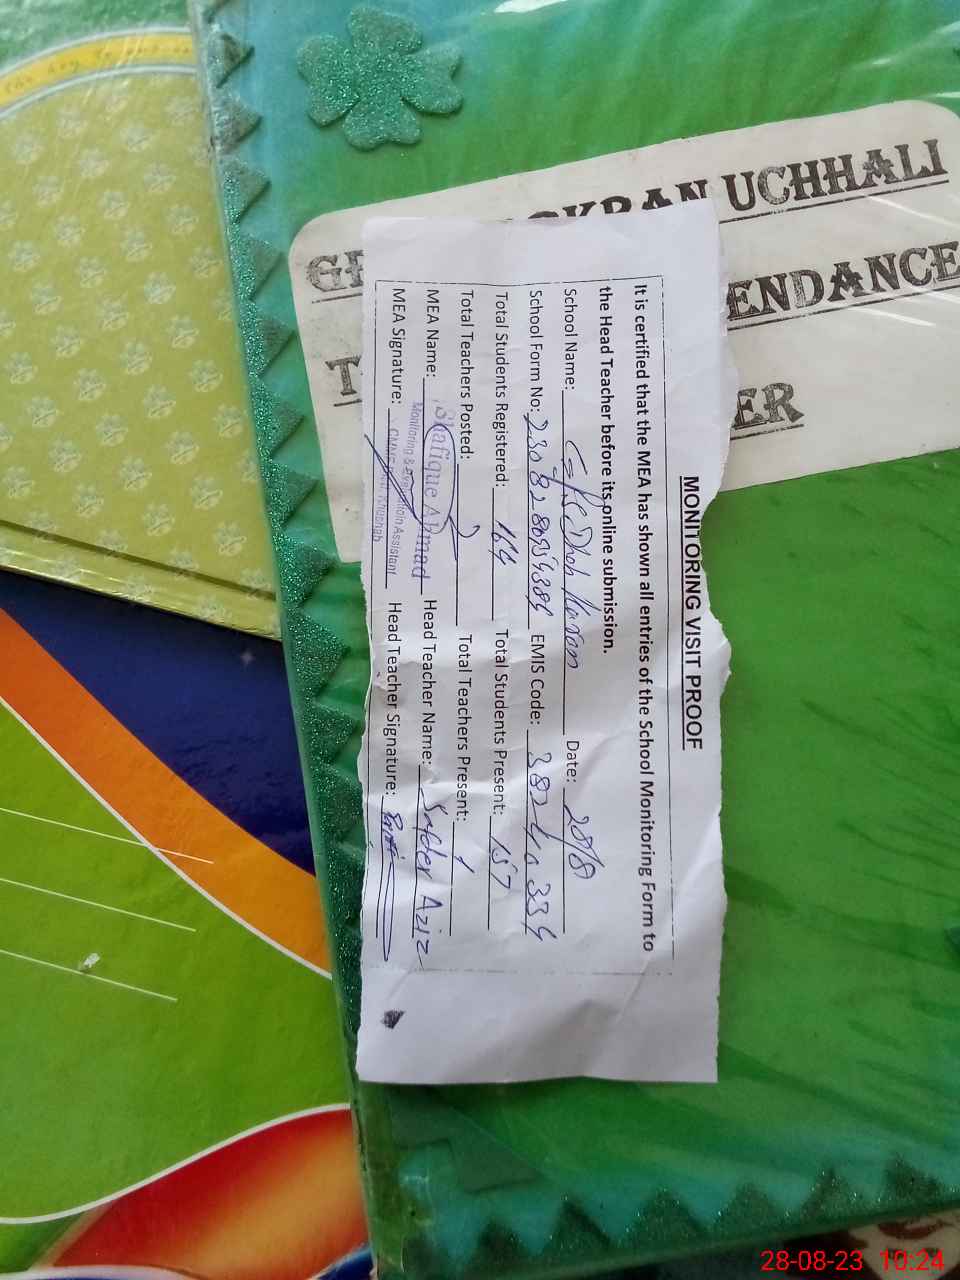 UCHHALI
ENDANCE
ER
MONITORING VISIT PROOF
It is certified that the MEA has shown all entries of the School Monitoring Form to
the Head Teacher before its online submission.
School Name: Date: 28/8
School Form No: EMIS Code:
Total Students Registered: 164 Total Students Present: 157
Total Teachers Posted: 2 Total Teachers Present: 1
MEA Name: Shafique Ahmad Head Teacher Name: Safder Aziz
Monitoring & Evaluation Assistant
MEA Signature: Head Teacher Signature:
28-08-23 10:24